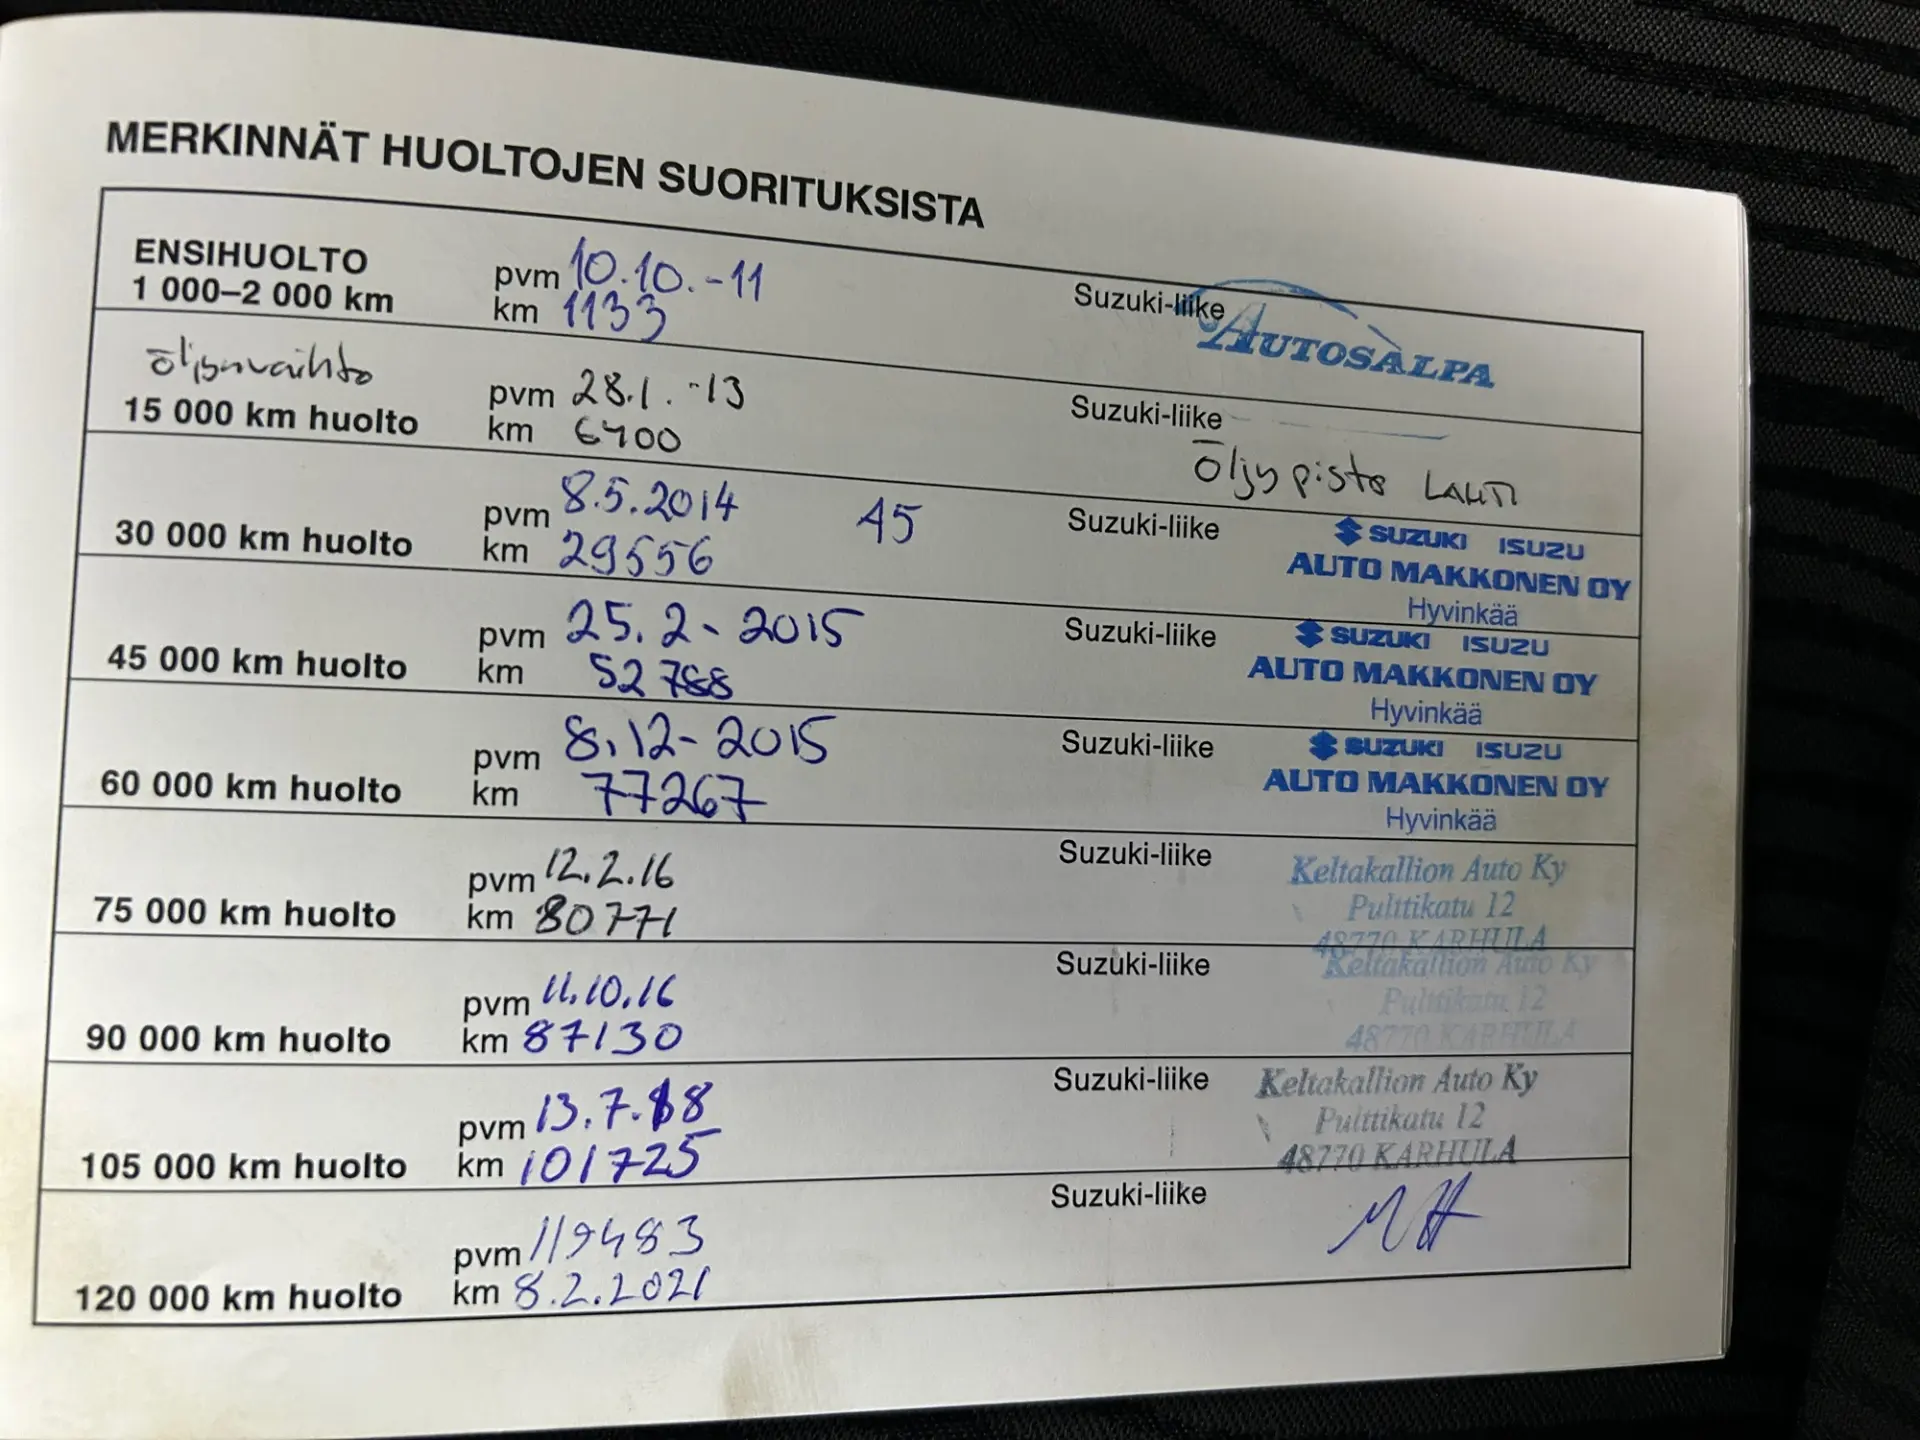 MERKINNÄT HUOLTOJEN SUORITUKSISTA
ENSIHUOLTO
1 000–2 000 km
pvm 10.10.-11
km 1133
Suzuki-liike
AUTOSALPA
öljynvaihto
15 000 km huolto
pvm 28.1.-13
km 6400
Suzuki-liike
Öljypiste LAHTI
30 000 km huolto
pvm 8.5.2014
km 29556
45
Suzuki-liike
SUZUKI ISUZU
AUTO MAKKONEN OY
Hyvinkää
45 000 km huolto
pvm 25.2-2015
km 52788
Suzuki-liike
SUZUKI ISUZU
AUTO MAKKONEN OY
Hyvinkää
60 000 km huolto
pvm 8.12-2015
km 77267
Suzuki-liike
SUZUKI ISUZU
AUTO MAKKONEN OY
Hyvinkää
75 000 km huolto
pvm 12.2.16
km 80771
Suzuki-liike
Keltakallion Auto Ky
Pulttikatu 12
48770 KARHULA
90 000 km huolto
pvm 11.10.16
km 87130
Suzuki-liike
Keltakallion Auto Ky
Pulttikatu 12
48770 KARHULA
105 000 km huolto
pvm 13.7.18
km 101725
Suzuki-liike
Keltakallion Auto Ky
Pulttikatu 12
48770 KARHULA
120 000 km huolto
pvm 119483
km 8.2.2021
Suzuki-liike